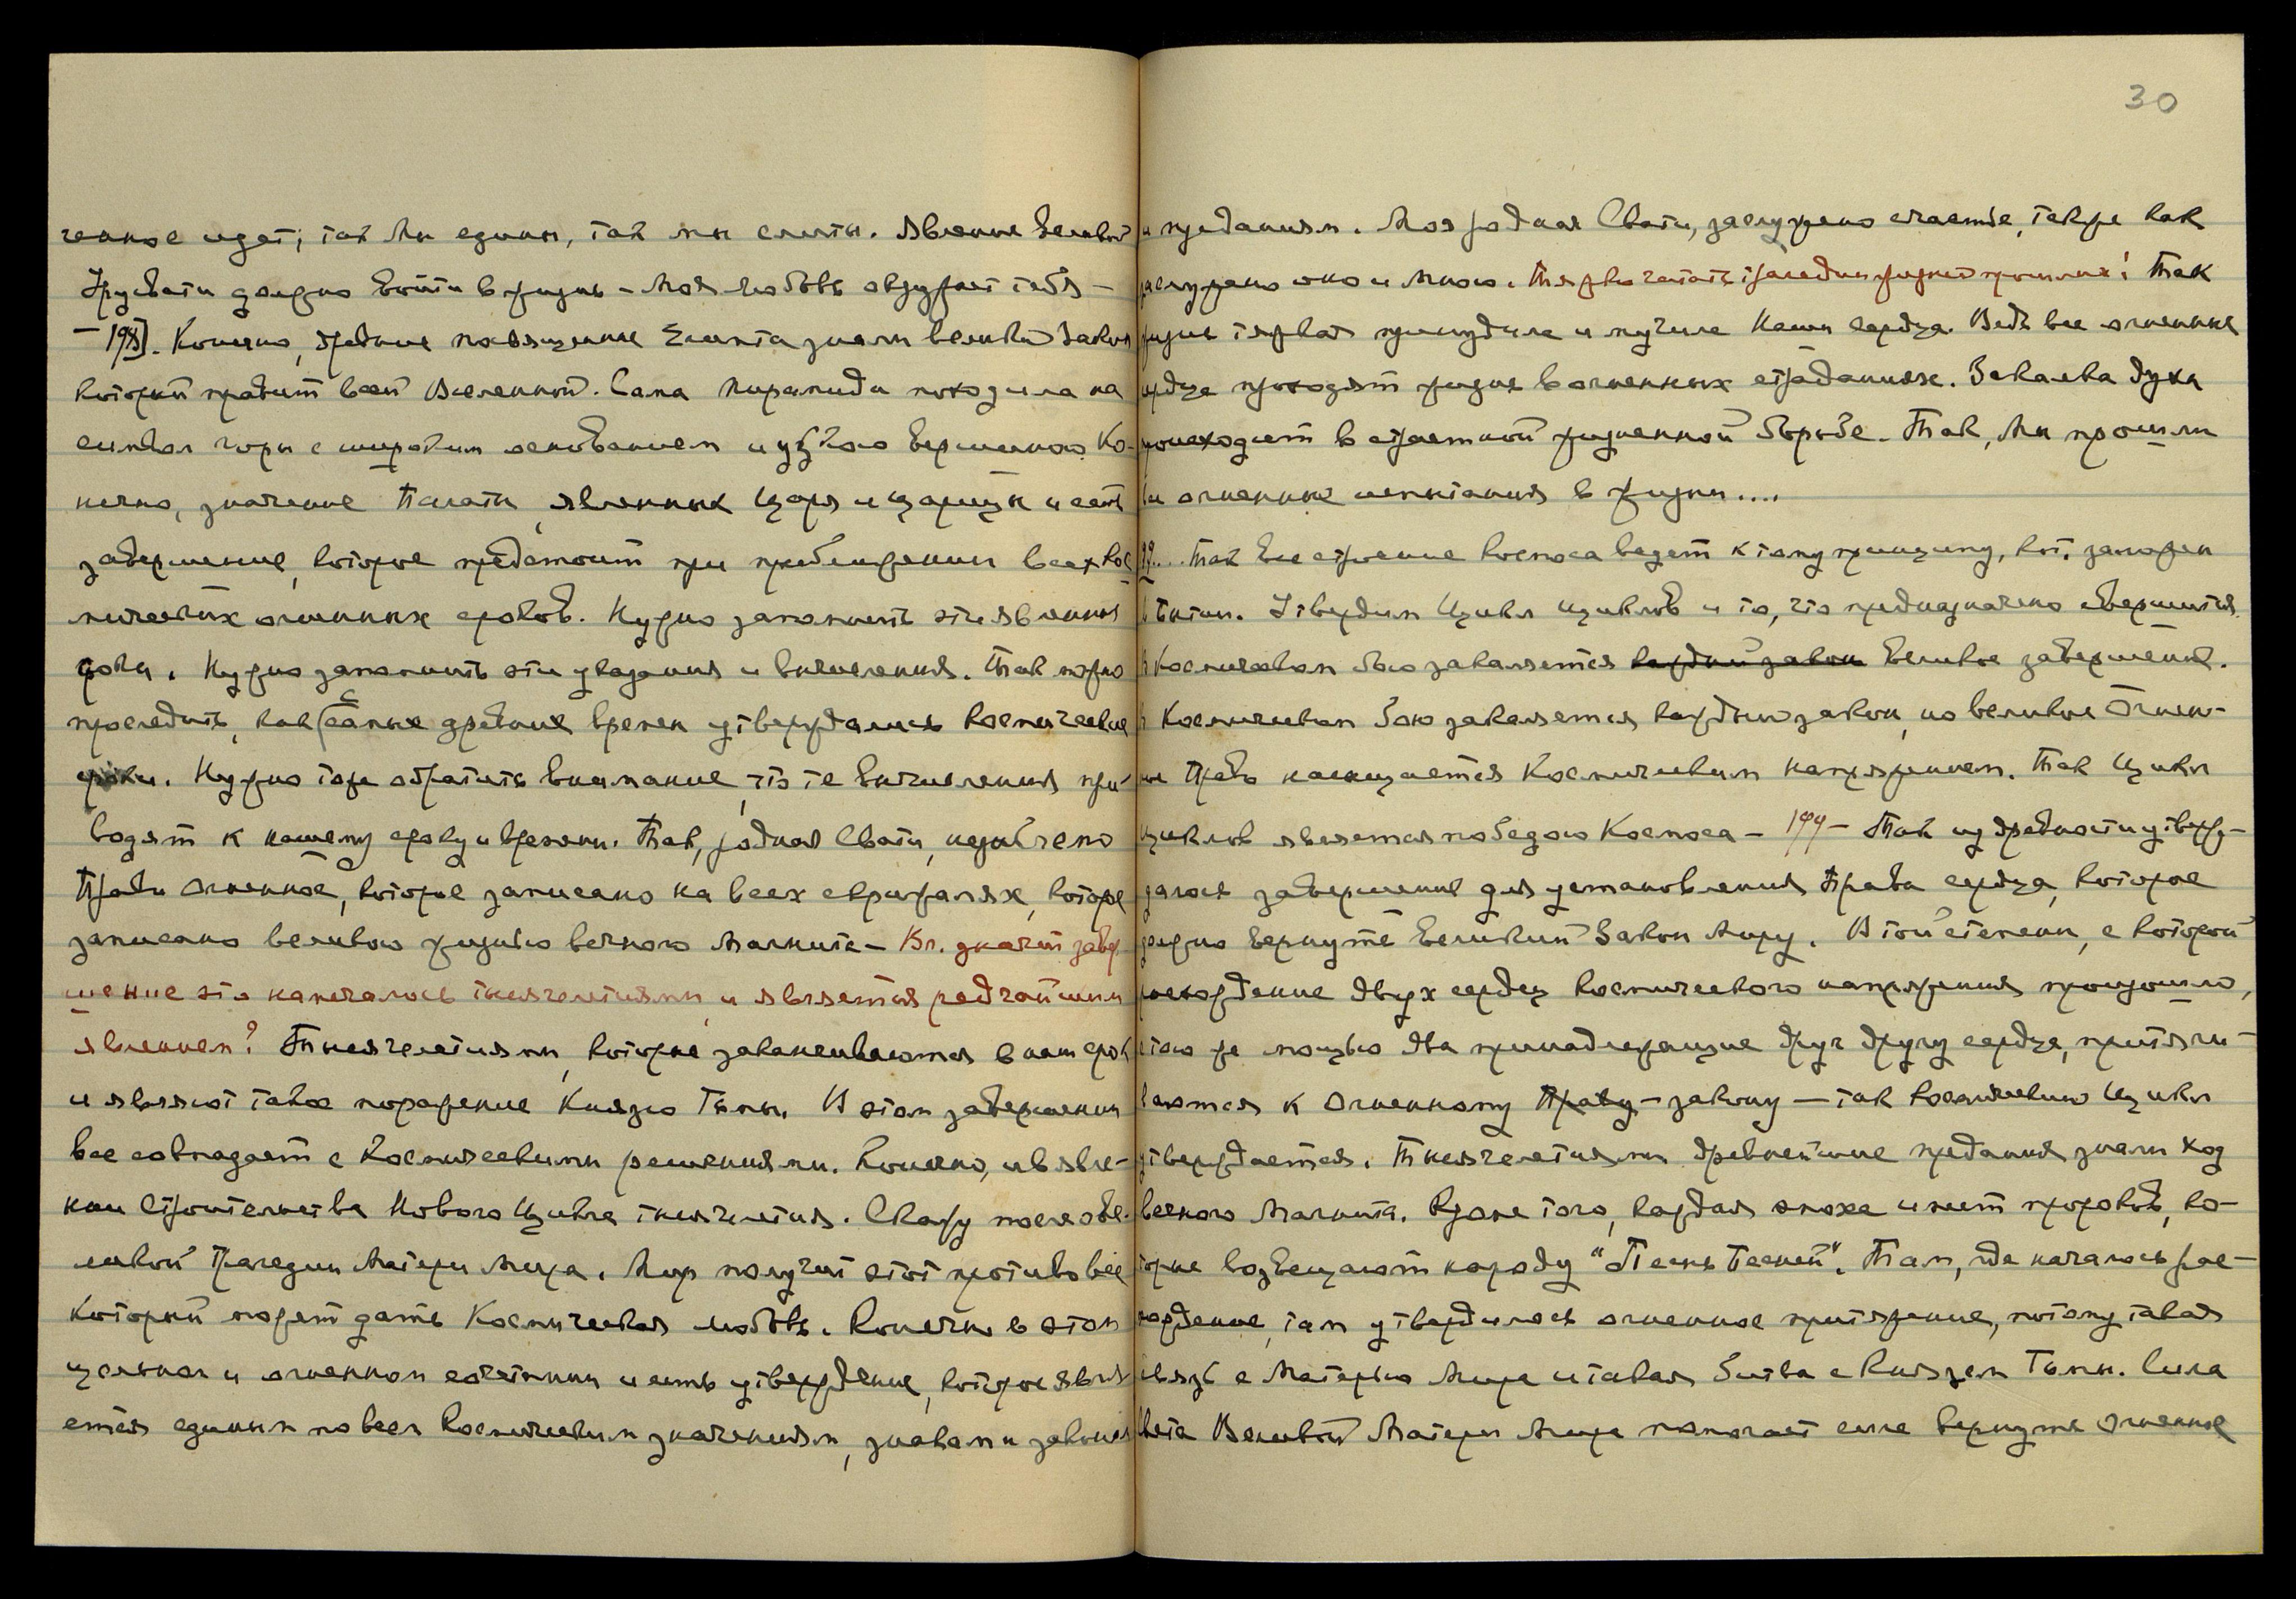 ченное идет; так Мы едины, так мы слиты. Явление Великой
Урусвати должно войти в жизнь – Моя любовь окружает тебя –
– 193]. Конечно, древние посвященные Египта знали великий Закон
который правит всей Вселенной. Сама пирамида походила на
символ горы с широким основанием и узкою вершиною. Ко-
нечно, значение Палаты, явленных Царя и Царицы и есть
завершение, которое предстоит при приближении всех кос
мических огненных сроков. Нужно запомнить эти явленные
сроки. Нужно запомнить эти указания и вычисления. Так можно
проследить, как с самых древних времен утверждались космические
сроки. Нужно тоже обратить внимание, что те вычисления при-
водят к нашему сроку и времени. Так, родная Свати, незыблемо
Право Огненное, которое записано на всех скрижалях, которое
записано великою жизнью вечного Магнита – Вл. значит завер
шение это намечалось тысячелетиями и является редчайшим
явлением? Тысячелетиями, которые заканчиваются в наш срок
и являют такое поражение Князю Тьмы. В этом завершении
все совпадает с Космическими решениями. Конечно, и в явле-
нии Строительства Нового Цикла тысячелетия. Скажу после о ве-
ликой трагедии Матери Мира. Мир получит этот противовес
который может дать Космическая любовь. Конечно в этом
цельном и огненном сочетании и есть утверждение, которое явля
ется единым по всем космическим значениям, знакам и законам
30
и преданиям. Моя родная Свати, заслужено счастье, также как
заслужено оно и Мною. Тяжко читать трагедии жизней прошлых! Так
жизнь тяжкая принудила и мучила Наши сердца. Ведь все огненные
сердца проходят жизнь в огненных страданиях. Закалка духа
происходит в страстной жизненной борьбе. Так, Мы прошли
все огненные испытания в жизни....
.... Так все строение Космоса ведет к тому принципу, кот. заложен
в Бытии. Утвердим Цикл циклов и то, что предназначено свершится.
В Космическом бою закаляется каждый закон великое завершение.
В Космическом бою закаляется каждый закон, но великое Огнен-
ное Право насыщается Космическим напряжением. Так Цикл
циклов является победою Космоса – 194 – Так из древности утверж-
далось завершение для установления Права сердца, которое
должно вернуть Великий Закон Миру. В той степени, с которой
расхождение двух сердец космического напряжения произошло,
с тою же мощью два принадлежащие друг другу сердца, притяги-
ваются к Огненному Праву – закону – так космический Цикл
утверждается. Тысячелетиями древнейшие предания знали ход
вечного Магнита. Кроме того, каждая эпоха имеет пророков, ко-
торые возвещают народу "Песнь Песней". Там, где началось рас-
хождение, там утвердилось огненное притяжение, потому такая
связь с Матерью Мира и такая битва с Князем Тьмы. Сила
света Великой Матери Мира помогает силе вернуть Огненное